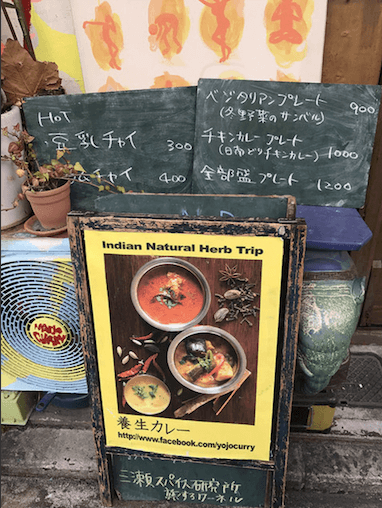 Hot
豆乳チャイ 300
チャイ 400
ベジタリアンプレート 900
(冬野菜のサンバル)
チキンカレー プレート
(日替どりチキンカレー) 1000
全部盛プレート 1200
Indian Natural Herb Trip
養生カレー
http://www.facebook.com/yojocurry
三瀬スパイス研究所